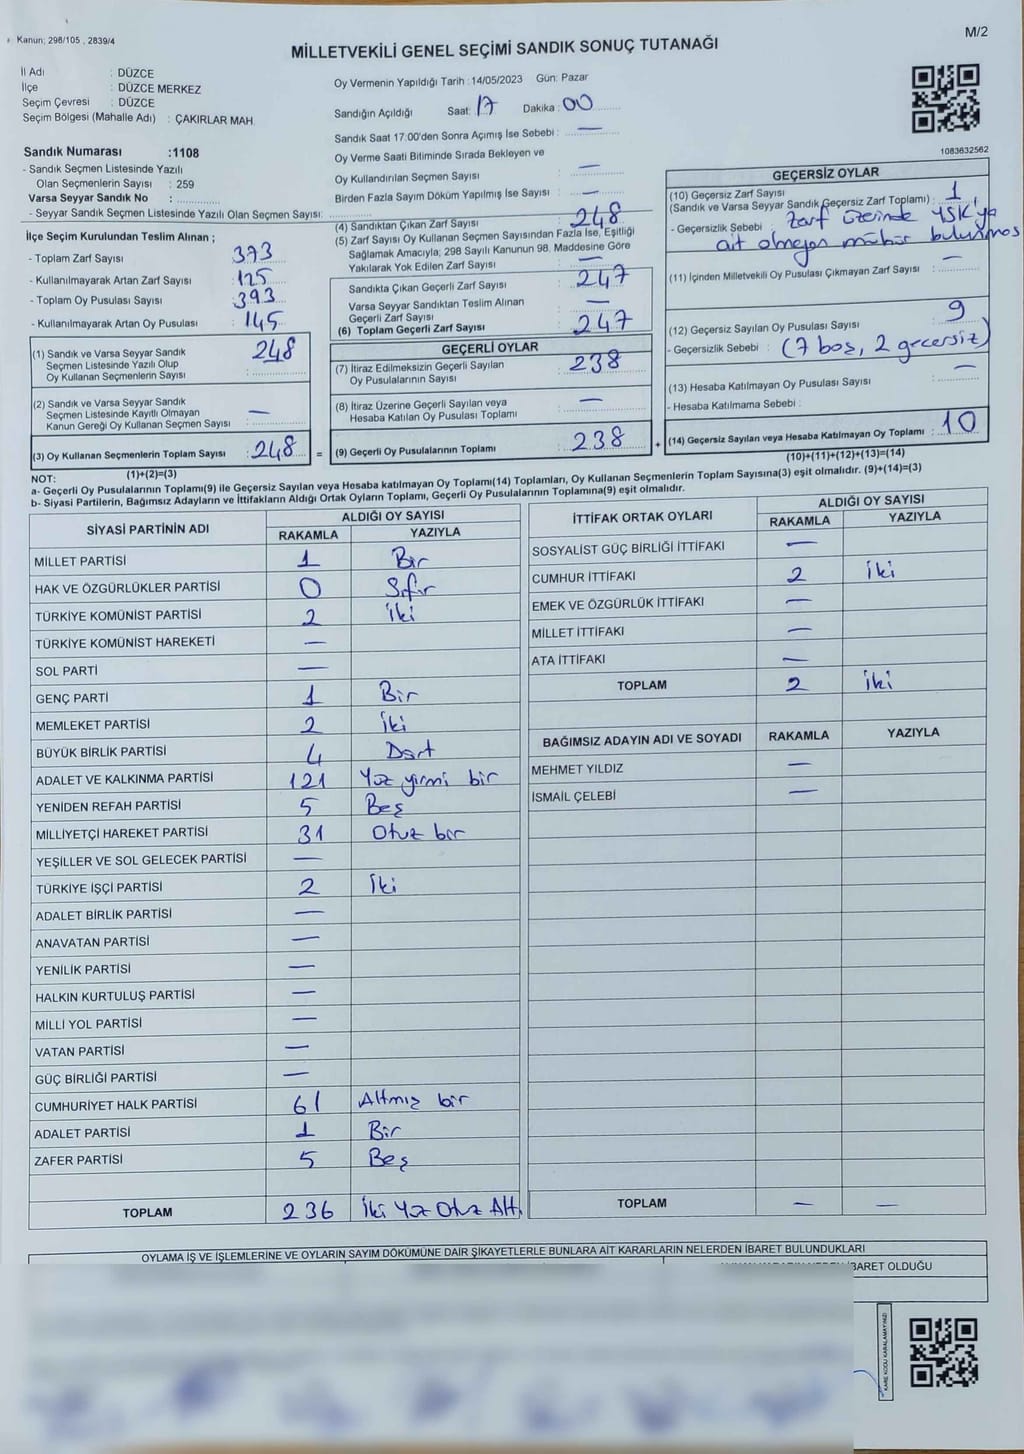 Kanun; 298/105 , 2839/4
M/2
MİLLETVEKİLİ GENEL SEÇİMİ SANDIK SONUÇ TUTANAĞI
İl Adı : DÜZCE
İlçe : DÜZCE MERKEZ
Seçim Çevresi : DÜZCE
Seçim Bölgesi (Mahalle Adı) : ÇAKIRLAR MAH.
Sandık Numarası :1108
- Sandık Seçmen Listesinde Yazılı
Olan Seçmenlerin Sayısı : 259
Varsa Seyyar Sandık No :
- Seyyar Sandık Seçmen Listesinde Yazılı Olan Seçmen Sayısı:
Oy Vermenin Yapıldığı Tarih :14/05/2023 Gün: Pazar
Sandığın Açıldığı Saat: 17 Dakika : 00
Sandık Saat 17:00'den Sonra Açımış İse Sebebi : —
Oy Verme Saati Bitiminde Sırada Bekleyen ve
Oy Kullandırılan Seçmen Sayısı —
Birden Fazla Sayım Döküm Yapılmış İse Sayısı —
1083632562
İlçe Seçim Kurulundan Teslim Alınan ;
- Toplam Zarf Sayısı : 373
- Kullanılmayarak Artan Zarf Sayısı : 125
- Toplam Oy Pusulası Sayısı : 393
- Kullanılmayarak Artan Oy Pusulası : 145
(1) Sandık ve Varsa Seyyar Sandık
Seçmen Listesinde Yazılı Olup
Oy Kullanan Seçmenlerin Sayısı : 248
(2) Sandık ve Varsa Seyyar Sandık
Seçmen Listesinde Kayıtlı Olmayan
Kanun Gereği Oy Kullanan Seçmen Sayısı : —
(3) Oy Kullanan Seçmenlerin Toplam Sayısı : 248
(1)+(2)=(3)
(4) Sandıktan Çıkan Zarf Sayısı 248
(5) Zarf Sayısı Oy Kullanan Seçmen Sayısından Fazla İse, Eşitliği
Sağlamak Amacıyla, 298 Sayılı Kanunun 98. Maddesine Göre
Yakılarak Yok Edilen Zarf Sayısı : —
Sandıkta Çıkan Geçerli Zarf Sayısı : 247
Varsa Seyyar Sandıktan Teslim Alınan
Geçerli Zarf Sayısı : —
(6) Toplam Geçerli Zarf Sayısı : 247
GEÇERLİ OYLAR
(7) İtiraz Edilmeksizin Geçerli Sayılan
Oy Pusulalarının Sayısı : 238
(8) İtiraz Üzerine Geçerli Sayılan veya
Hesaba Katılan Oy Pusulası Toplamı : —
= (9) Geçerli Oy Pusulalarının Toplamı : 238
GEÇERSİZ OYLAR
(10) Geçersiz Zarf Sayısı
(Sandık ve Varsa Seyyar Sandık Geçersiz Zarf Toplamı) : 1
- Geçersizlik Sebebi : Zarf üzerinde YSK'ya
ait olmayan mühür bulunması
(11) İçinden Milletvekili Oy Pusulası Çıkmayan Zarf Sayısı : —
(12) Geçersiz Sayılan Oy Pusulası Sayısı : 9
- Geçersizlik Sebebi : (7 boş, 2 geçersiz)
(13) Hesaba Katılmayan Oy Pusulası Sayısı : —
- Hesaba Katılmama Sebebi :
+ (14) Geçersiz Sayılan veya Hesaba Katılmayan Oy Toplamı : 10
(10)+(11)+(12)+(13)=(14)
NOT:
a- Geçerli Oy Pusulalarının Toplamı(9) ile Geçersiz Sayılan veya Hesaba katılmayan Oy Toplamı(14) Toplamları, Oy Kullanan Seçmenlerin Toplam Sayısına(3) eşit olmalıdır. (9)+(14)=(3)
b- Siyasi Partilerin, Bağımsız Adayların ve İttifakların Aldığı Ortak Oyların Toplamı, Geçerli Oy Pusulalarının Toplamına(9) eşit olmalıdır.
SİYASİ PARTİNİN ADI ALDIĞI OY SAYISI
RAKAMLA YAZIYLA
MİLLET PARTİSİ 1 Bir
HAK VE ÖZGÜRLÜKLER PARTİSİ 0 Sıfır
TÜRKİYE KOMÜNİST PARTİSİ 2 İki
TÜRKİYE KOMÜNİST HAREKETİ —
SOL PARTİ —
GENÇ PARTİ 1 Bir
MEMLEKET PARTİSİ 2 İki
BÜYÜK BİRLİK PARTİSİ 4 Dört
ADALET VE KALKINMA PARTİSİ 121 Yüz yirmi bir
YENİDEN REFAH PARTİSİ 5 Beş
MİLLİYETÇİ HAREKET PARTİSİ 31 Otuz bir
YEŞİLLER VE SOL GELECEK PARTİSİ —
TÜRKİYE İŞÇİ PARTİSİ 2 İki
ADALET BİRLİK PARTİSİ —
ANAVATAN PARTİSİ —
YENİLİK PARTİSİ —
HALKIN KURTULUŞ PARTİSİ —
MİLLİ YOL PARTİSİ —
VATAN PARTİSİ —
GÜÇ BİRLİĞİ PARTİSİ —
CUMHURİYET HALK PARTİSİ 61 Altmış bir
ADALET PARTİSİ 1 Bir
ZAFER PARTİSİ 5 Beş
TOPLAM 236 İki Yüz Otuz Altı
İTTİFAK ORTAK OYLARI ALDIĞI OY SAYISI
RAKAMLA YAZIYLA
SOSYALİST GÜÇ BİRLİĞİ İTTİFAKI —
CUMHUR İTTİFAKI 2 İki
EMEK VE ÖZGÜRLÜK İTTİFAKI —
MİLLET İTTİFAKI —
ATA İTTİFAKI —
TOPLAM 2 İki
BAĞIMSIZ ADAYIN ADI VE SOYADI RAKAMLA YAZIYLA
MEHMET YILDIZ —
İSMAİL ÇELEBİ —
TOPLAM — —
OYLAMA İŞ VE İŞLEMLERİNE VE OYLARIN SAYIM DÖKÜMÜNE DAİR ŞİKAYETLERLE BUNLARA AİT KARARLARIN NELERDEN İBARET BULUNDUKLARI
İBARET OLDUĞU
KARE KODU KARALAMAYINIZ!